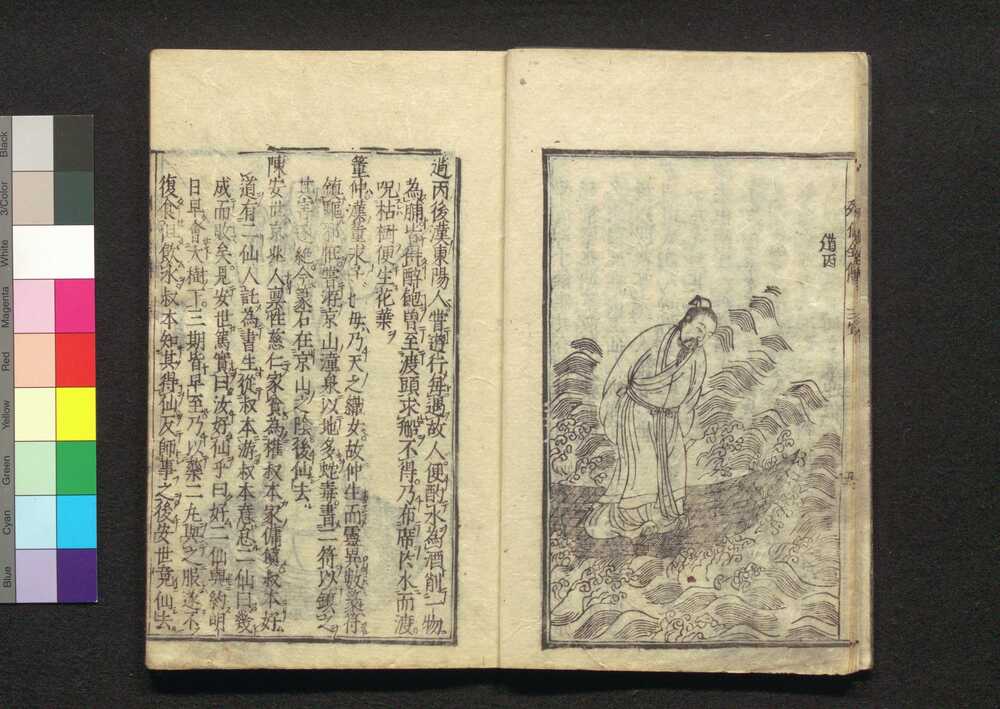 道丙
道丙後漢東陽人嘗遊行每過故人便酌水為酒削一物
為脯皆得醉飽曽至渡頭求不得乃布席於水而渡
呪枯樹便生花葉
董仲漢董永子也母乃天之織女故仲生而靈異數篆符
鎮邪嘗游京山潼泉以地多蛇毒書二符以鎮之
其害遂絶今篆石在京山之陰後仙去
陳安世京兆人稟性慈仁家貧為權叔本家傭賃叔本好
道有二仙人託為書生從叔本游叔本意怠二仙曰幾
成而敗矣見安世篤實曰汝好仙乎曰好二仙與約明
日早會大樹下三期皆早至乃以藥二丸與之服遂不
復食但飲水叔本知其得仙反師事之後安世竟仙去
Black
3/Color
White
Magenta
Red
Yellow
Green
Cyan
Blue